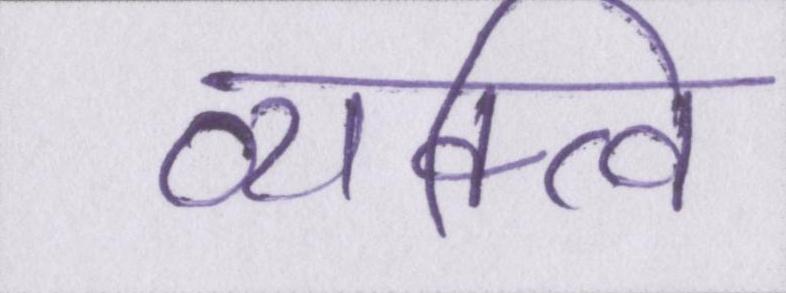 व्यक्त्वि